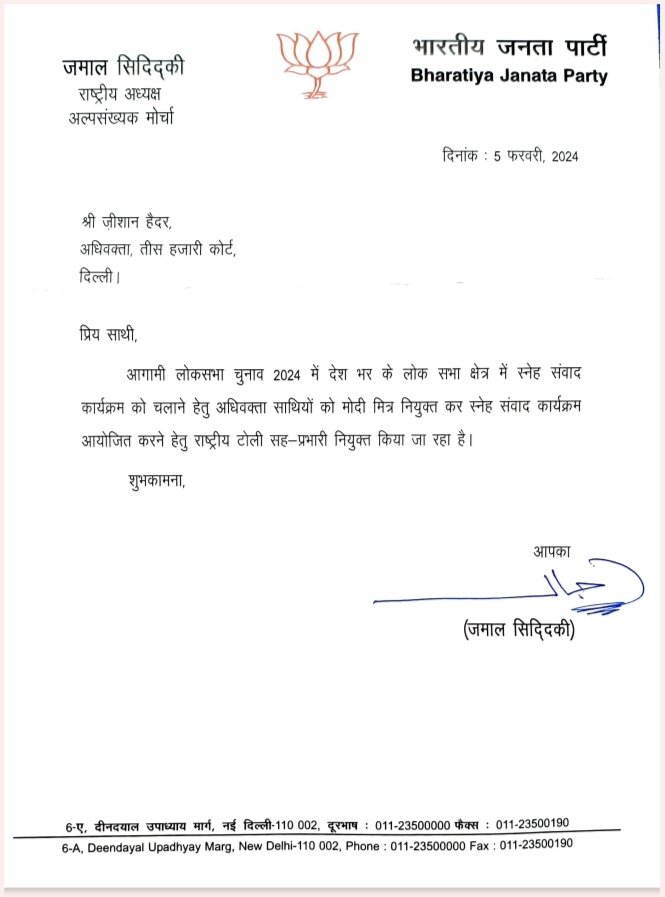 जमाल सिदि्दकी
राष्ट्रीय अध्यक्ष
अल्पसंख्यक मोर्चा
भारतीय जनता पार्टी
Bharatiya Janata Party
दिनांक : 5 फरवरी, 2024
श्री ज़ीशान हैदर,
अधिवक्ता, तीस हजारी कोर्ट,
दिल्ली।
प्रिय साथी,
आगामी लोकसभा चुनाव 2024 में देश भर के लोक सभा क्षेत्र में स्नेह संवाद
कार्यक्रम को चलाने हेतु अधिवक्ता साथियों को मोदी मित्र नियुक्त कर स्नेह संवाद कार्यक्रम
आयोजित करने हेतु राष्ट्रीय टोली सह–प्रभारी नियुक्त किया जा रहा है।
शुभकामना,
आपका
(जमाल सिदि्दकी)
6-ए, दीनदयाल उपाध्याय मार्ग, नई दिल्ली-110 002, दूरभाष : 011-23500000 फैक्स : 011-23500190
6-A, Deendayal Upadhyay Marg, New Delhi-110 002, Phone : 011-23500000 Fax : 011-23500190